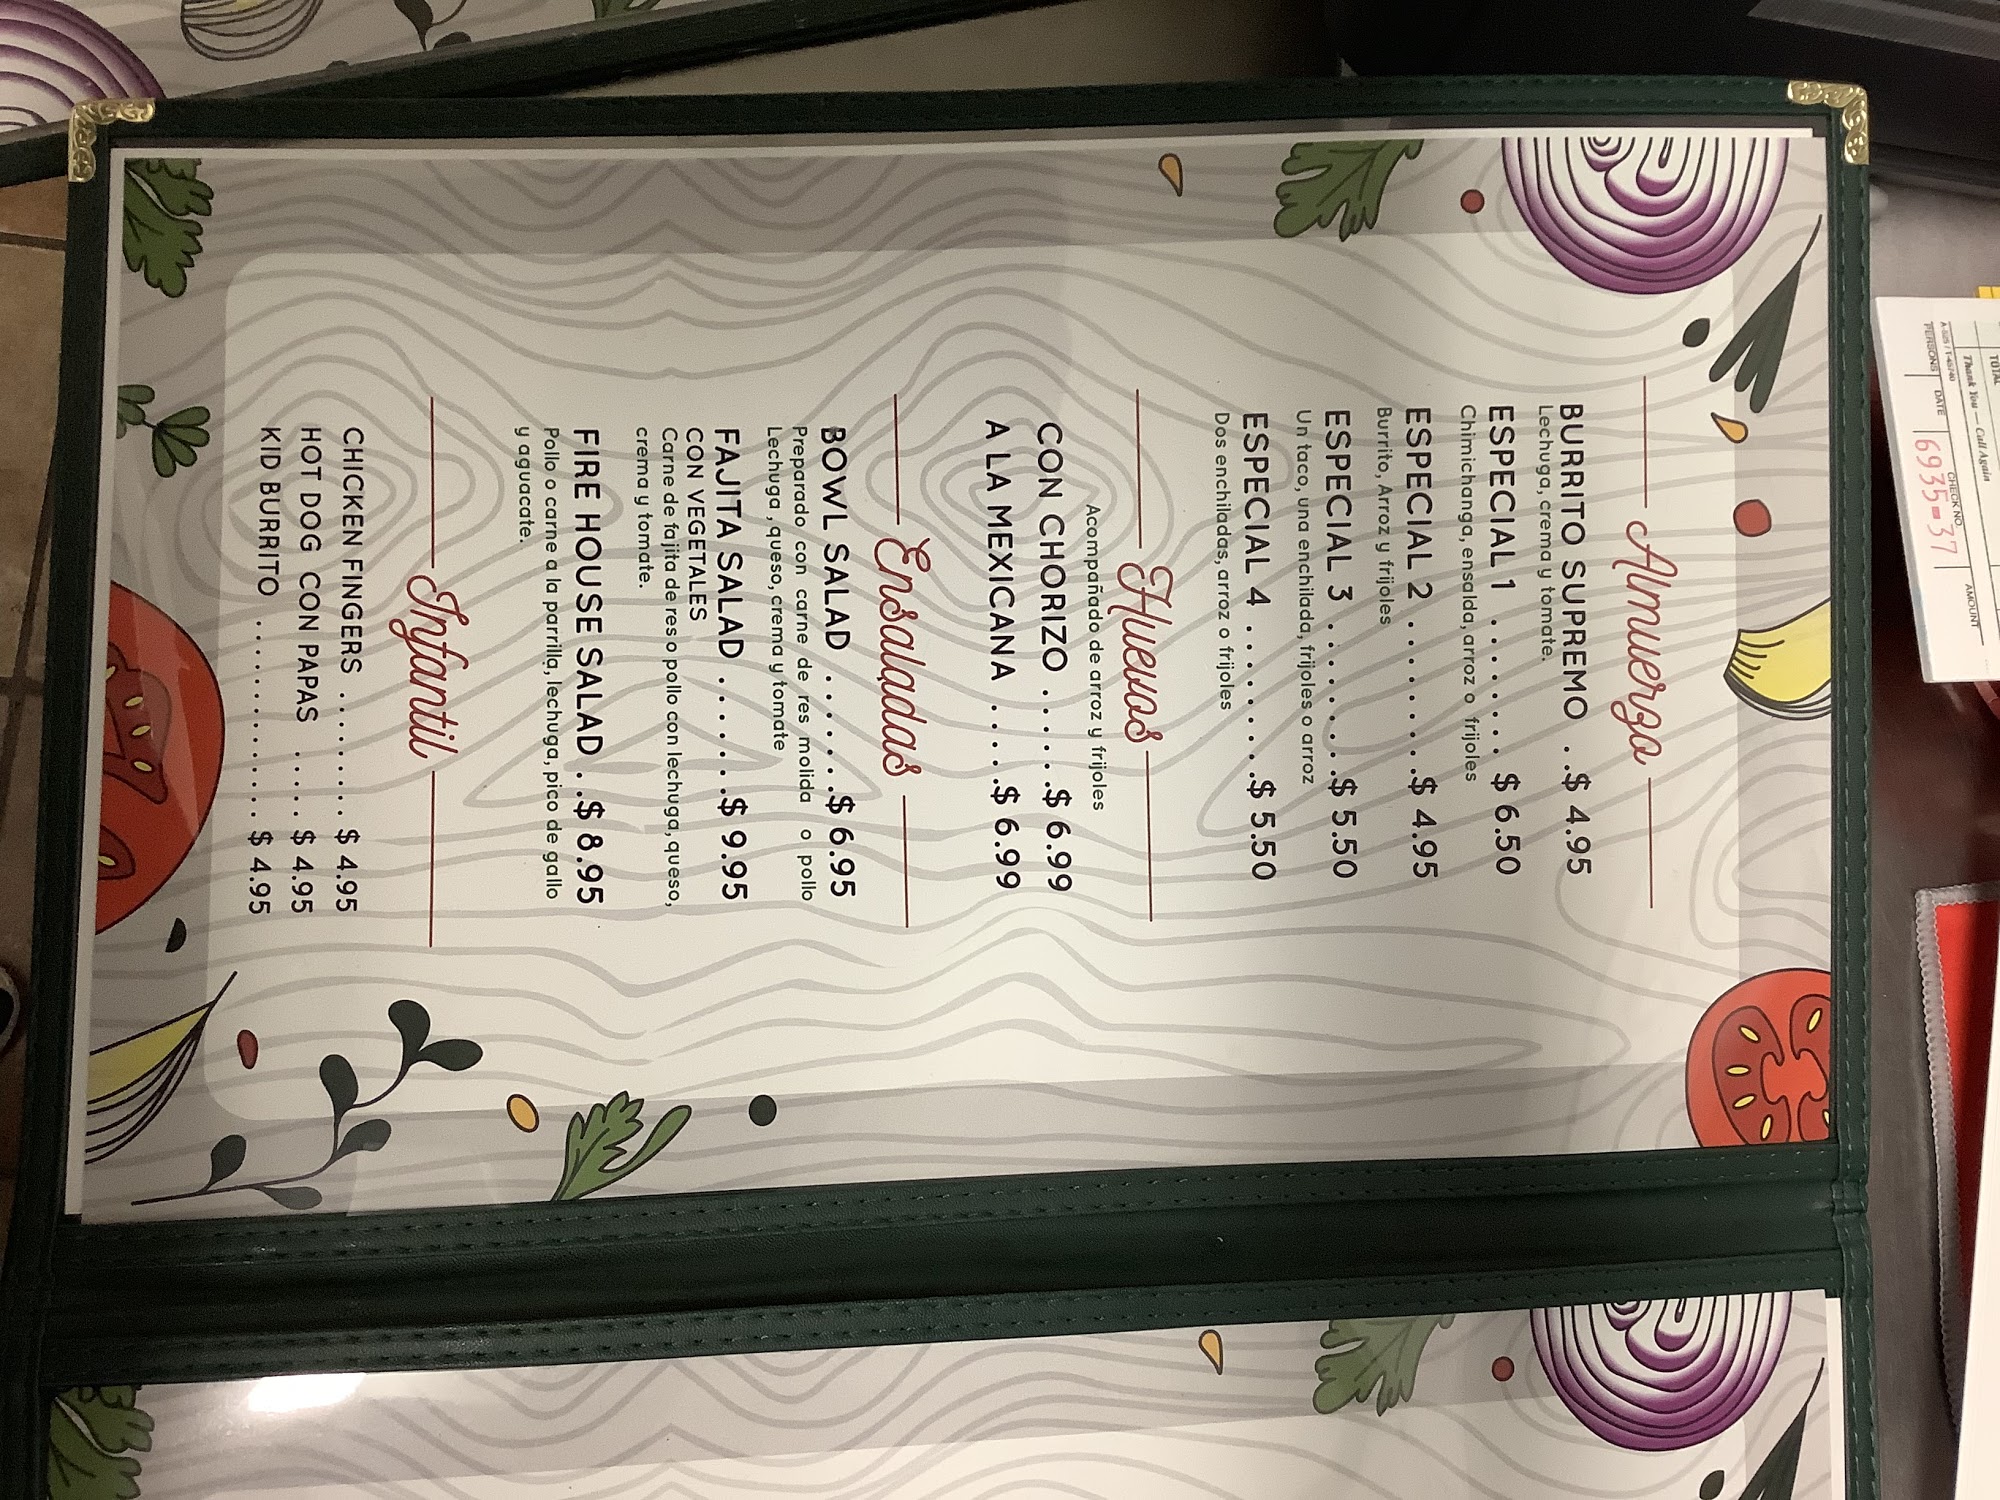 Almuerzo
BURRITO SUPREMO . .$ 4.95
Lechuga, crema y tomate.
ESPECIAL 1 . . . . . . . . $ 6.50
Chimichanga, ensalda, arroz o frijoles
ESPECIAL 2 . . . . . . . .$ 4.95
Burrito, Arroz y frijoles
ESPECIAL 3 . . . . . . . .$ 5.50
Un taco, una enchilada, frijoles o arroz
ESPECIAL 4 . . . . . . . .$ 5.50
Dos enchiladas, arroz o frijoles
Huevos
Acompañado de arroz y frijoles
CON CHORIZO . . . . .$ 6.99
A LA MEXICANA . . . . .$ 6.99
Ensaladas
BOWL SALAD . . . . . . .$ 6.95
Preparado con carne de res molida o pollo
Lechuga , queso, crema y tomate
FAJITA SALAD . . . . . . .$ 9.95
CON VEGETALES
Carne de fajita de res o pollo con lechuga, queso,
crema y tomate.
FIRE HOUSE SALAD . .$ 8.95
Pollo o carne a la parrilla, lechuga, pico de gallo
y aguacate.
Infantil
CHICKEN FINGERS . . . . . . . . $ 4.95
HOT DOG CON PAPAS . . . . . $ 4.95
KID BURRITO . . . . . . . . . . . . . $ 4.95
TOTAL
Thank You — Call Again
A-525 / T-45740
PERSONS
DATE
CHECK NO.
AMOUNT
6935-37